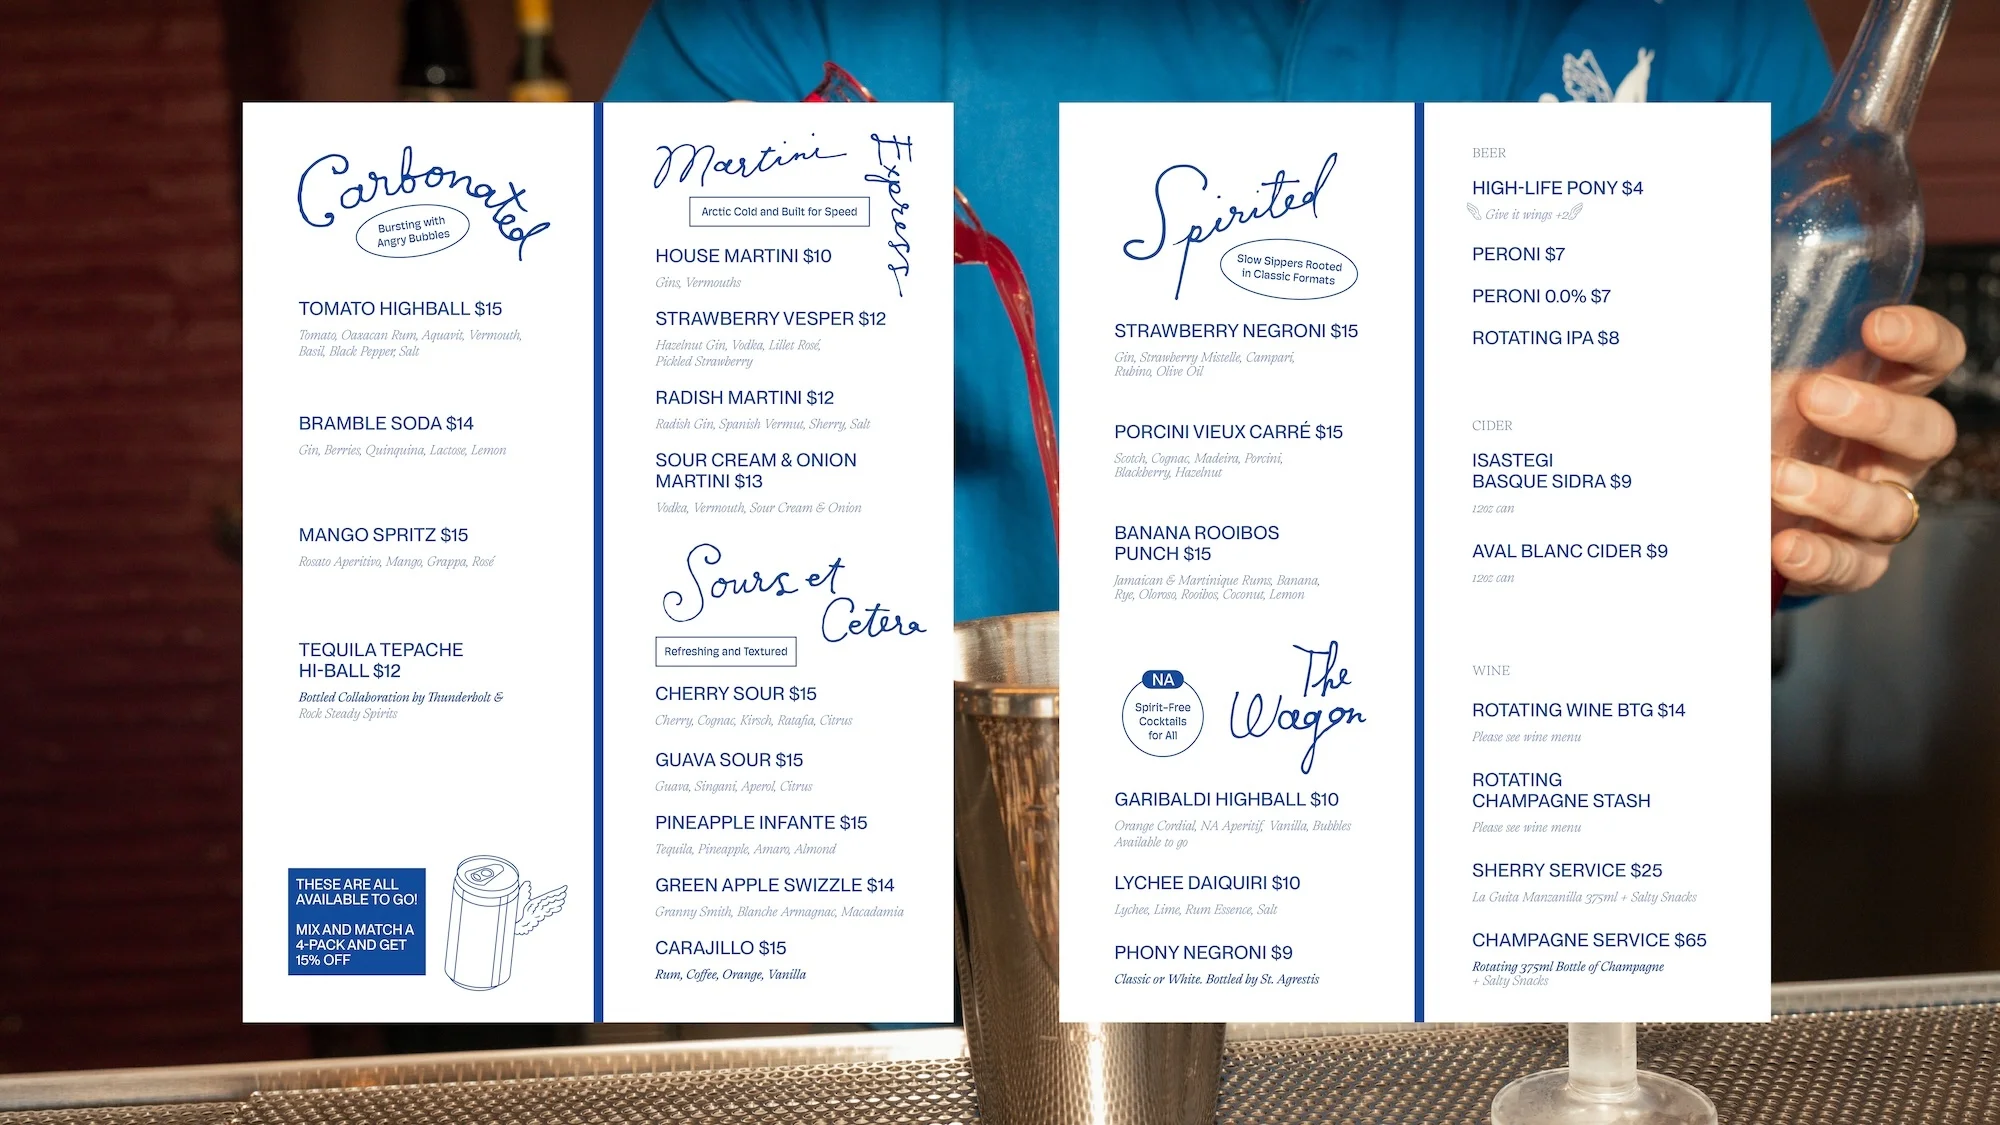 Carbonated
Bursting with
Angry Bubbles
TOMATO HIGHBALL $15
Tomato, Oaxacan Rum, Aquavit, Vermouth,
Basil, Black Pepper, Salt
BRAMBLE SODA $14
Gin, Berries, Quinquina, Lactose, Lemon
MANGO SPRITZ $15
Rosato Aperitivo, Mango, Grappa, Rosé
TEQUILA TEPACHE
HI-BALL $12
Bottled Collaboration by Thunderbolt &
Rock Steady Spirits
THESE ARE ALL
AVAILABLE TO GO!
MIX AND MATCH A
4-PACK AND GET
15% OFF
Martini
Express
Arctic Cold and Built for Speed
HOUSE MARTINI $10
Gins, Vermouths
STRAWBERRY VESPER $12
Hazelnut Gin, Vodka, Lillet Rosé,
Pickled Strawberry
RADISH MARTINI $12
Radish Gin, Spanish Vermut, Sherry, Salt
SOUR CREAM & ONION
MARTINI $13
Vodka, Vermouth, Sour Cream & Onion
Sours et
Cetera
Refreshing and Textured
CHERRY SOUR $15
Cherry, Cognac, Kirsch, Ratafia, Citrus
GUAVA SOUR $15
Guava, Singani, Aperol, Citrus
PINEAPPLE INFANTE $15
Tequila, Pineapple, Amaro, Almond
GREEN APPLE SWIZZLE $14
Granny Smith, Blanche Armagnac, Macadamia
CARAJILLO $15
Rum, Coffee, Orange, Vanilla
Spirited
Slow Sippers Rooted
in Classic Formats
STRAWBERRY NEGRONI $15
Gin, Strawberry Mistelle, Campari,
Rubino, Olive Oil
PORCINI VIEUX CARRÉ $15
Scotch, Cognac, Madeira, Porcini,
Blackberry, Hazelnut
BANANA ROOIBOS
PUNCH $15
Jamaican & Martinique Rums, Banana,
Rye, Oloroso, Rooibos, Coconut, Lemon
The
Wagon
NA
Spirit-Free
Cocktails
for All
GARIBALDI HIGHBALL $10
Orange Cordial, NA Aperitif, Vanilla, Bubbles
Available to go
LYCHEE DAIQUIRI $10
Lychee, Lime, Rum Essence, Salt
PHONY NEGRONI $9
Classic or White. Bottled by St. Agrestis
BEER
HIGH-LIFE PONY $4
Give it wings +2
PERONI $7
PERONI 0.0% $7
ROTATING IPA $8
CIDER
ISASTEGI
BASQUE SIDRA $9
12oz can
AVAL BLANC CIDER $9
12oz can
WINE
ROTATING WINE BTG $14
Please see wine menu
ROTATING
CHAMPAGNE STASH
Please see wine menu
SHERRY SERVICE $25
La Guita Manzanilla 375ml + Salty Snacks
CHAMPAGNE SERVICE $65
Rotating 375ml Bottle of Champagne
+ Salty Snacks